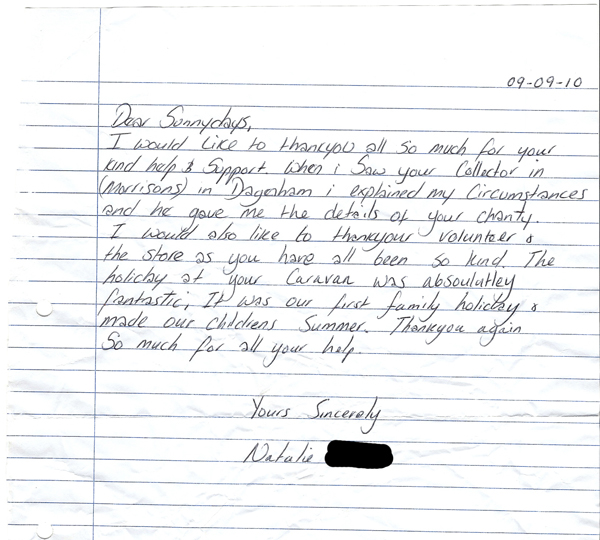 09-09-10
Dear Sunnydays,
I would like to thankyou all so much for your
kind help & Support. When i Saw your Collector in
(Morrisons) in Dagenham i explained my Circumstances
and he gave me the details of your charity.
I would also like to thankyour volunteer &
the store as you have all been so kind The
holiday at your Caravan was absoulutley
fantastic, It was our first family holiday &
made our childrens Summer. Thankyou again
So much for all your help.
Yours Sincerely
Natalie